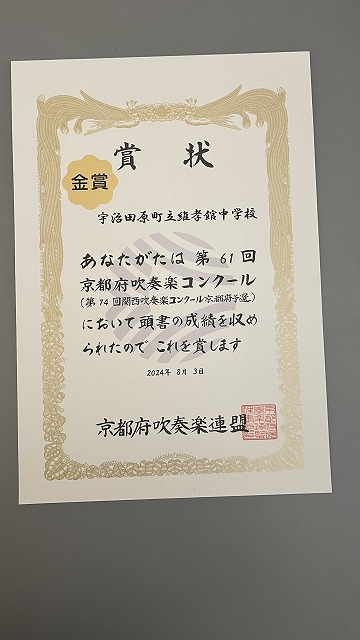 賞状
金賞
宇治田原町立維孝館中学校
あなたがたは 第61回
京都府吹奏楽コンクール
(第74回関西吹奏楽コンクール京都府予選)
において頭書の成績を収め
られたので これを賞します
2024年 8月 3日
京都府吹奏楽連盟